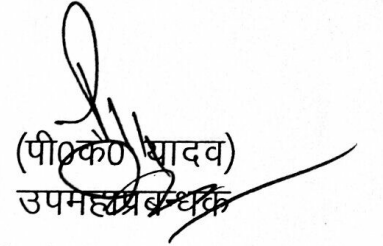 (पी०के० यादव)
उपमहाप्रबन्धक